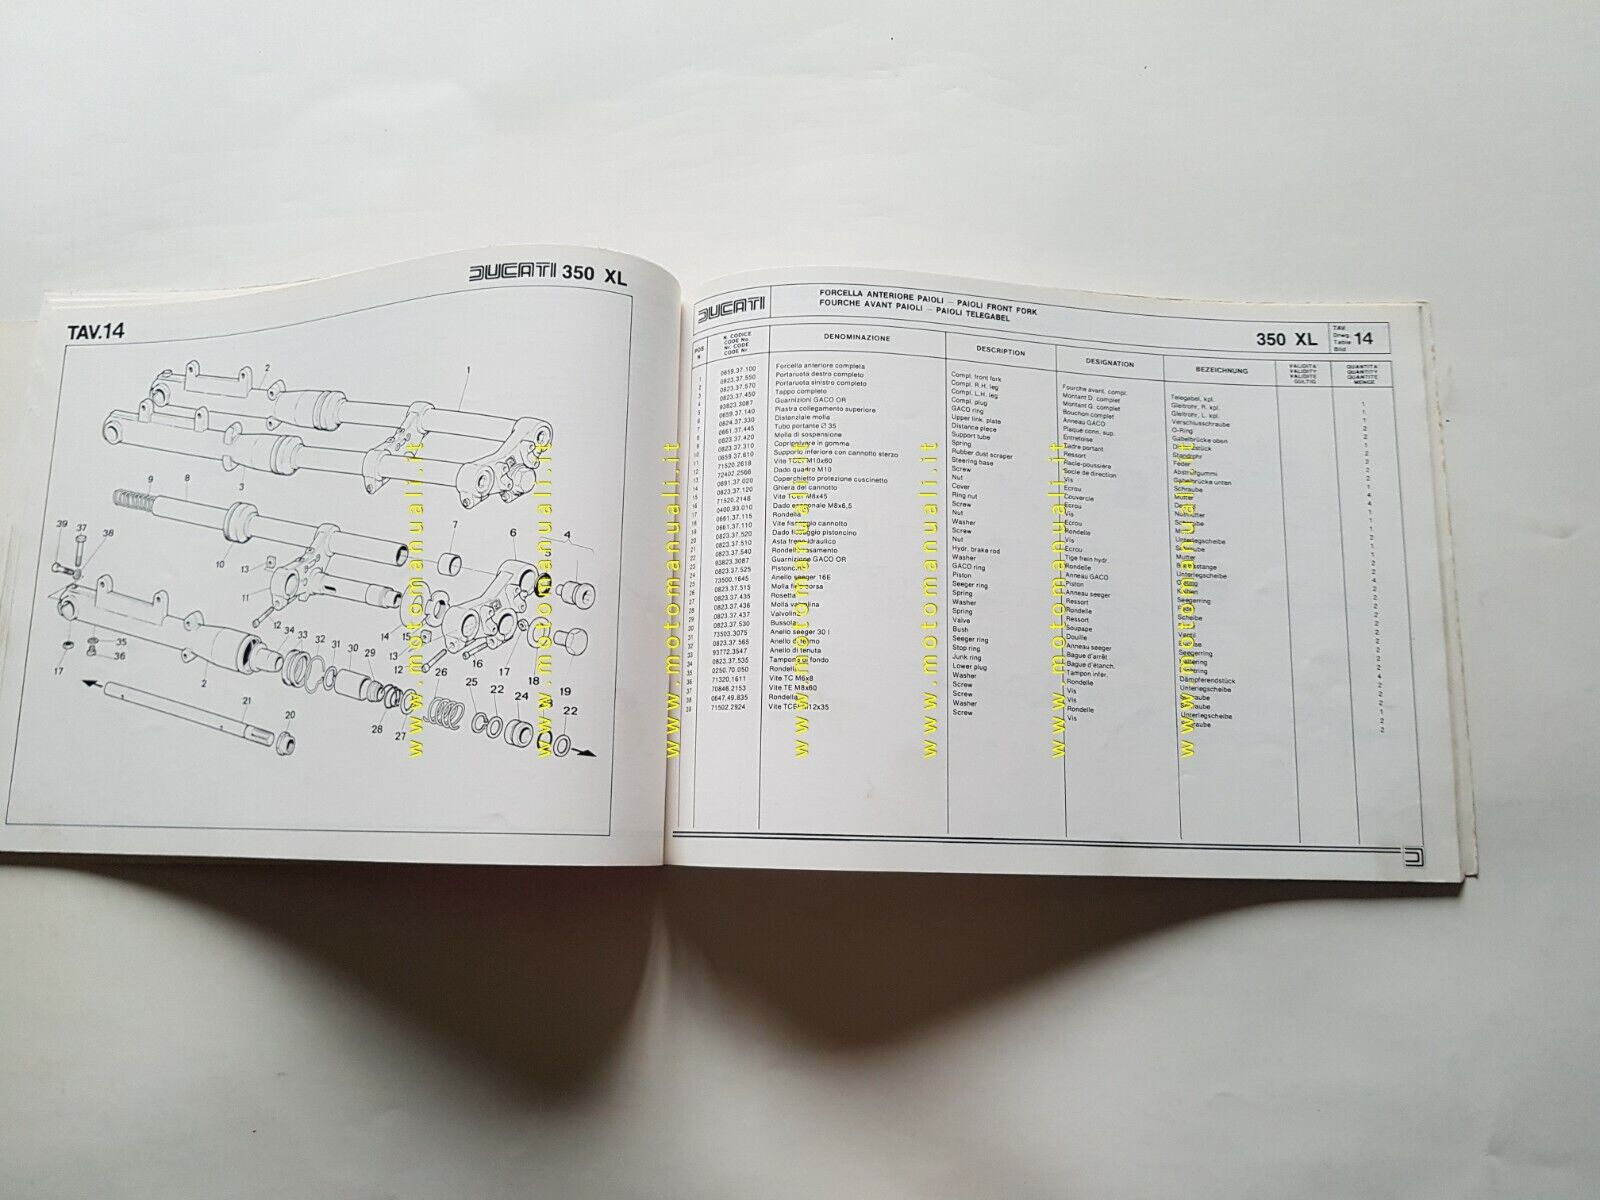 DUCATI 350 XL
TAV.14
DUCATI
FORCELLA ANTERIORE PAIOLI — PAIOLI FRONT FORK
FOURCHE AVANT PAIOLI — PAIOLI TELEGABEL
350 XL
TAV. Drwg. Table Bild 14
POS. N.
N. CODICE
CODE No.
Nr. CODE
CODE Nr.
DENOMINAZIONE
DESCRIPTION
DESIGNATION
BEZEICHNUNG
VALIDITA
VALIDITY
VALIDITE
GULTIG
QUANTITA
QUANTITY
QUANTITE
MENGE
0659.37.100 Forcella anteriore completa Compl. front fork Fourche avant. compl. Telegabel, kpl.
0823.37.550 Portaruota destro completo Compl. R.H. leg Montant D. complet Gleitrohr, R. kpl.
0823.37.570 Portaruota sinistro completo Compl. L.H. leg Montant G. complet Gleitrohr, L. kpl.
0823.37.450 Tappo completo Compl. plug Bouchon complet Verschlusschraube
93823.3087 Guarnizioni GACO OR GACO ring Anneau GACO O-Ring
0659.37.140 Piastra collegamento superiore Upper link. plate Plaque conn. sup. Gabelbrücke oben
0824.37.330 Distanziale molla Distance piece Entretoise
0661.37.445 Tubo portante Ø 35 Support tube Tadre portant Standrohr
0823.37.420 Molla di sospensione Spring Ressort Feder
0823.37.310 Copripolvere in gomma Rubber dust scraper Racle-poussière
0659.37.610 Supporto inferiore con cannotto sterzo Steering base Socle de direction Gabelbrücke unten
71520.2618 Vite TCEI M10x60 Screw Vis Schraube
72402.2566 Dado quadro M10 Nut Ecrou Mutter
0691.37.020 Coperchietto protezione cuscinetto Cover Couvercle
0823.37.120 Ghiera del cannotto Ring nut Ecrou Nutmutter
71520.2146 Vite TCEI M8x45 Screw Vis Schraube
0400.93.010 Dado esagonale M8x6,5 Nut Ecrou Mutter
0661.37.115 Rondella Washer Rondelle Unterlegscheibe
0661.37.110 Vite fissaggio cannotto Screw Vis Schraube
0823.37.520 Dado fissaggio pistoncino Nut Ecrou Mutter
0823.37.510 Asta freno idraulico Hydr. brake rod Tige frein hydr.
0823.37.540 Rondella rasamento Washer Rondelle Unterlegscheibe
93823.3087 Guarnizione GACO OR GACO ring Anneau GACO
0823.37.525 Pistoncino Piston Piston Kolben
73500.1645 Anello seeger 16E Seeger ring Anneau seeger Seegerring
0823.37.515 Molla fine corsa Spring Ressort Feder
0823.37.435 Rosetta Washer Rondelle Scheibe
0823.37.436 Molla valvolina Spring Ressort
0823.37.437 Valvolina Valve Soupape Ventil
0823.37.530 Bussola Bush Douille
73503.3075 Anello seeger 30 I Seeger ring Anneau seeger Seegerring
0823.37.565 Anello di fermo Stop ring Bague d'arrêt Haltering
93772.3547 Anello di tenuta Junk ring Bague d'étanch.
0823.37.535 Tampone di fondo Lower plug Tampon infer. Dämpferendstück
0250.70.050 Rondella Washer Rondelle Unterlegscheibe
71320.1611 Vite TC M6x8 Screw Vis Schraube
70846.2153 Vite TE M8x60 Screw Vis Schraube
0647.49.835 Rondella Washer Rondelle Unterlegscheibe
71502.2924 Vite TCEI M12x35 Screw Vis Schraube
www.motomanuali.it
www.motomanuali.it
www.motomanuali.it
www.motomanuali.it
www.motomanuali.it
www.motomanuali.it
www.motomanuali.it